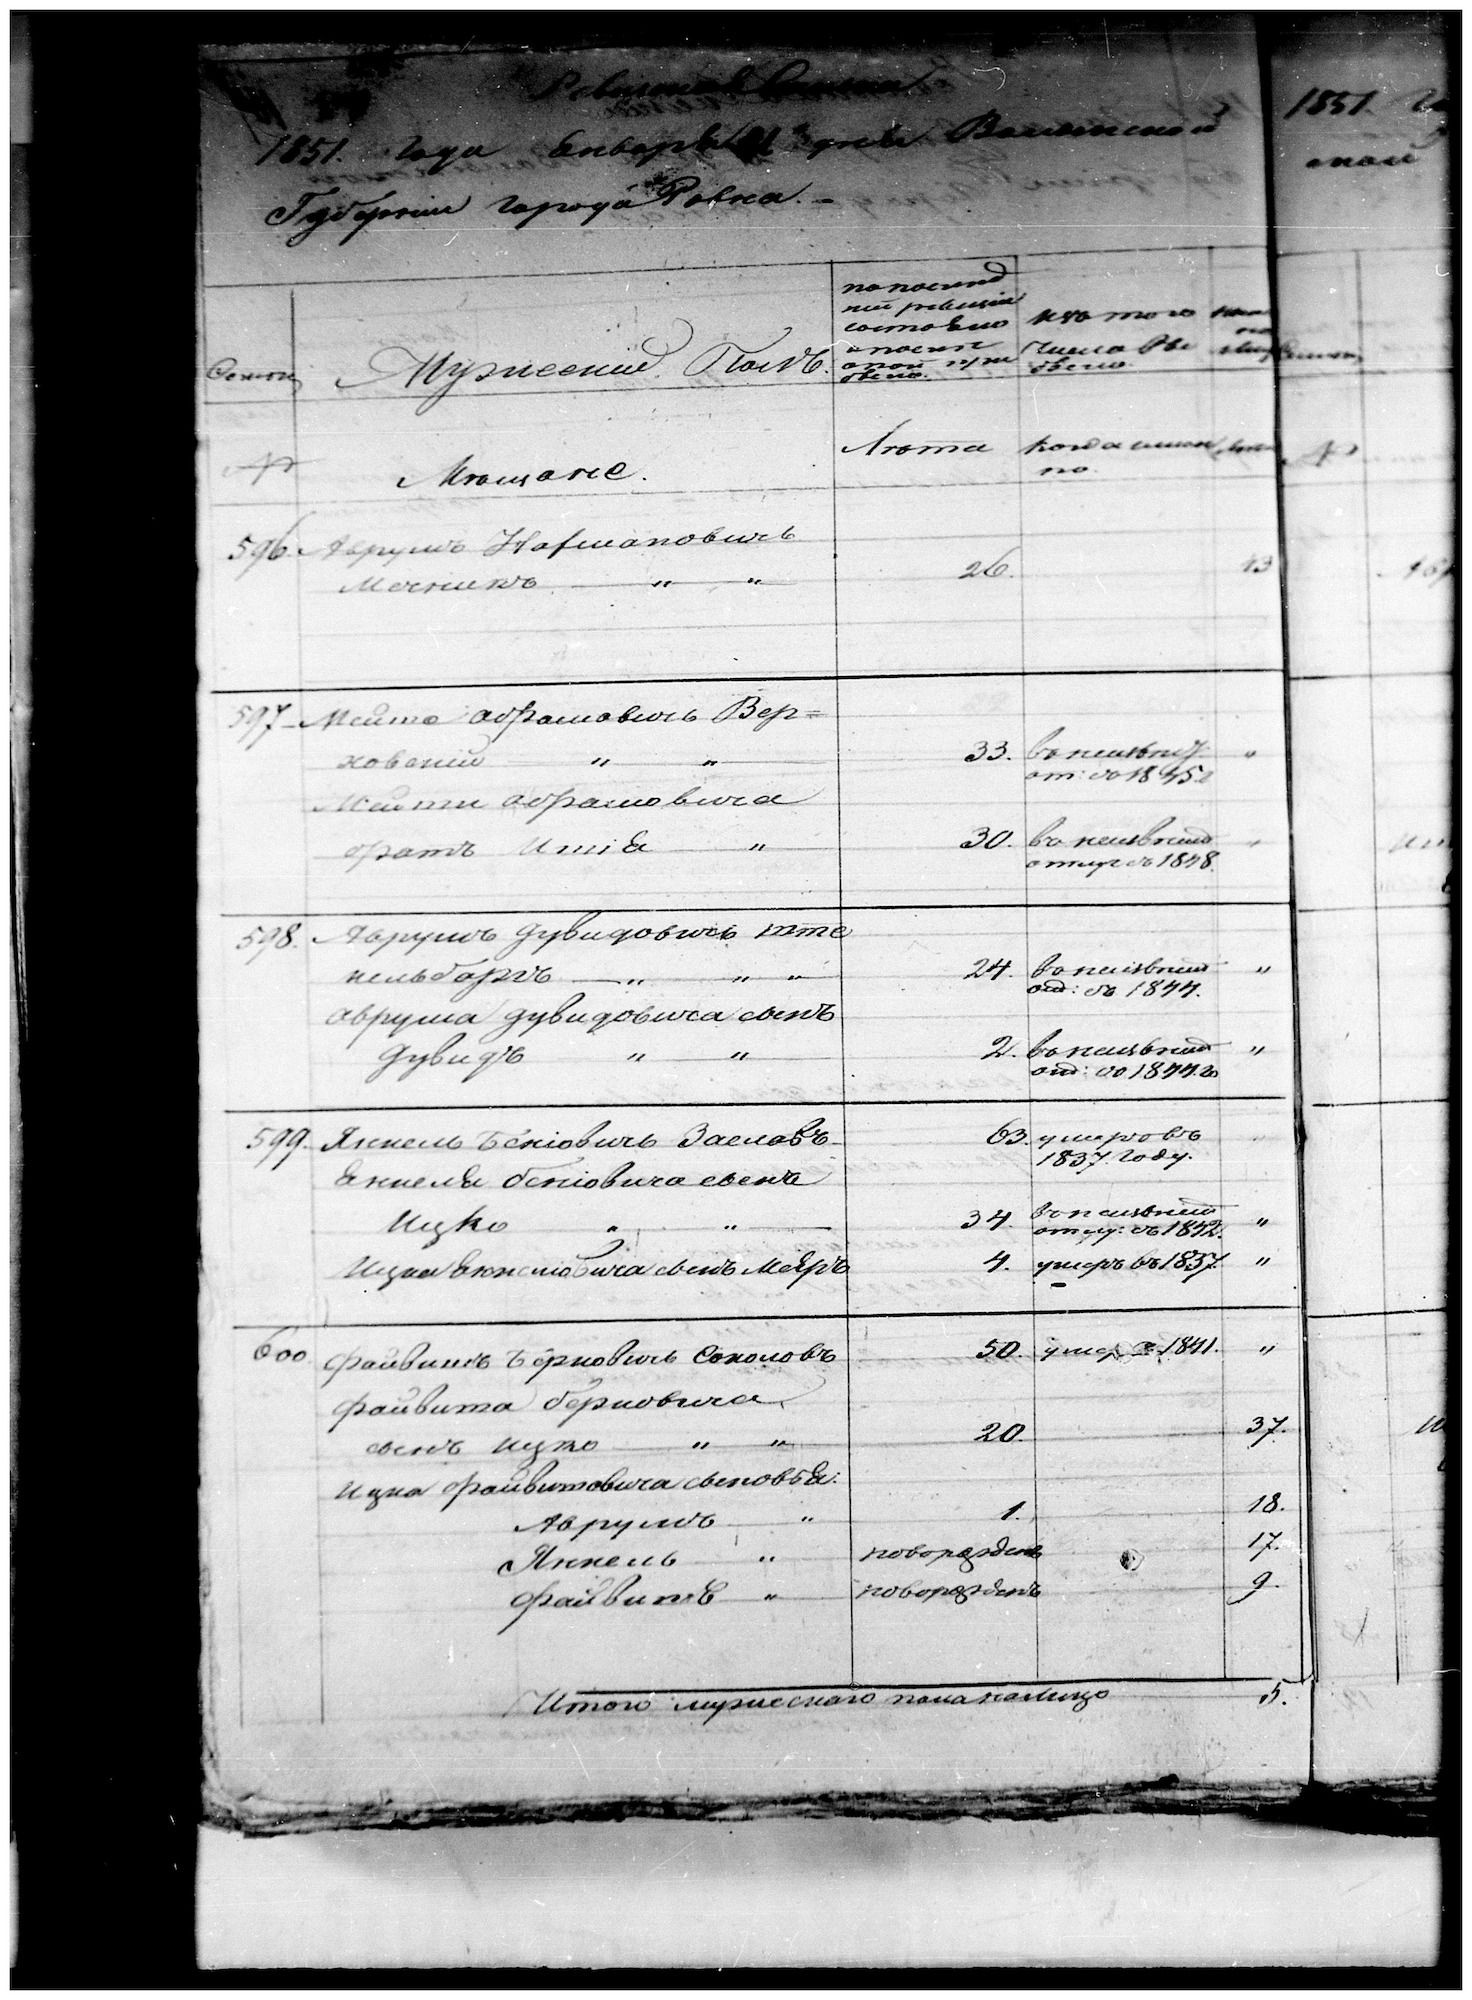 Ревизская Сказка
1851. года января дня Волынской
Губернии города Ровна. -
1851.
Семьи
Мужеский Полъ.
по послед
ней ревизіи
состояло
и послѣ
оной при
было.
изъ того
числа вы
было.
№
Мѣщане.
Лѣта
когда имен
но.
№
596. Аврумъ Нахмановичъ
Мечникъ " " 26. 43
597 Мейто Абрамовичъ Вер=
ховский " " 33. въ неизвѣст
отл: съ 1845 "
Мейти Абрамовича
братъ " 30. въ неизвѣстной
отлуч съ 1848. "
598. Аврумъ Дувидовичъ Ште
нельбаргъ " " " 24. въ неизвѣстной
отл: съ 1844. "
Аврума Дувидовича сынъ
Дувидъ " " 2. въ неизвѣстной
отл: съ 1844. "
599. Янкель Бенiовичъ Заславъ 63. умеръ въ
1837. году.
Янкеля Бенiовича сынъ
Ицко " " 34. въ неизвѣстной
отлу: съ 1842. "
Ицка Янкелiовича сынъ Меяръ 4. умеръ въ 1837. "
600. Файвишъ Берковичъ Соколовъ 50. умер 1841. "
Файвиша Берковича
сынъ Ицко " " 20. 37.
Ицка Файвишовича сыновья:
Аврумъ " 1. 18.
Янкель " новорожденъ 17.
Файвишъ " новорожденъ 9.
Итого мужескаго пола налицо 5.